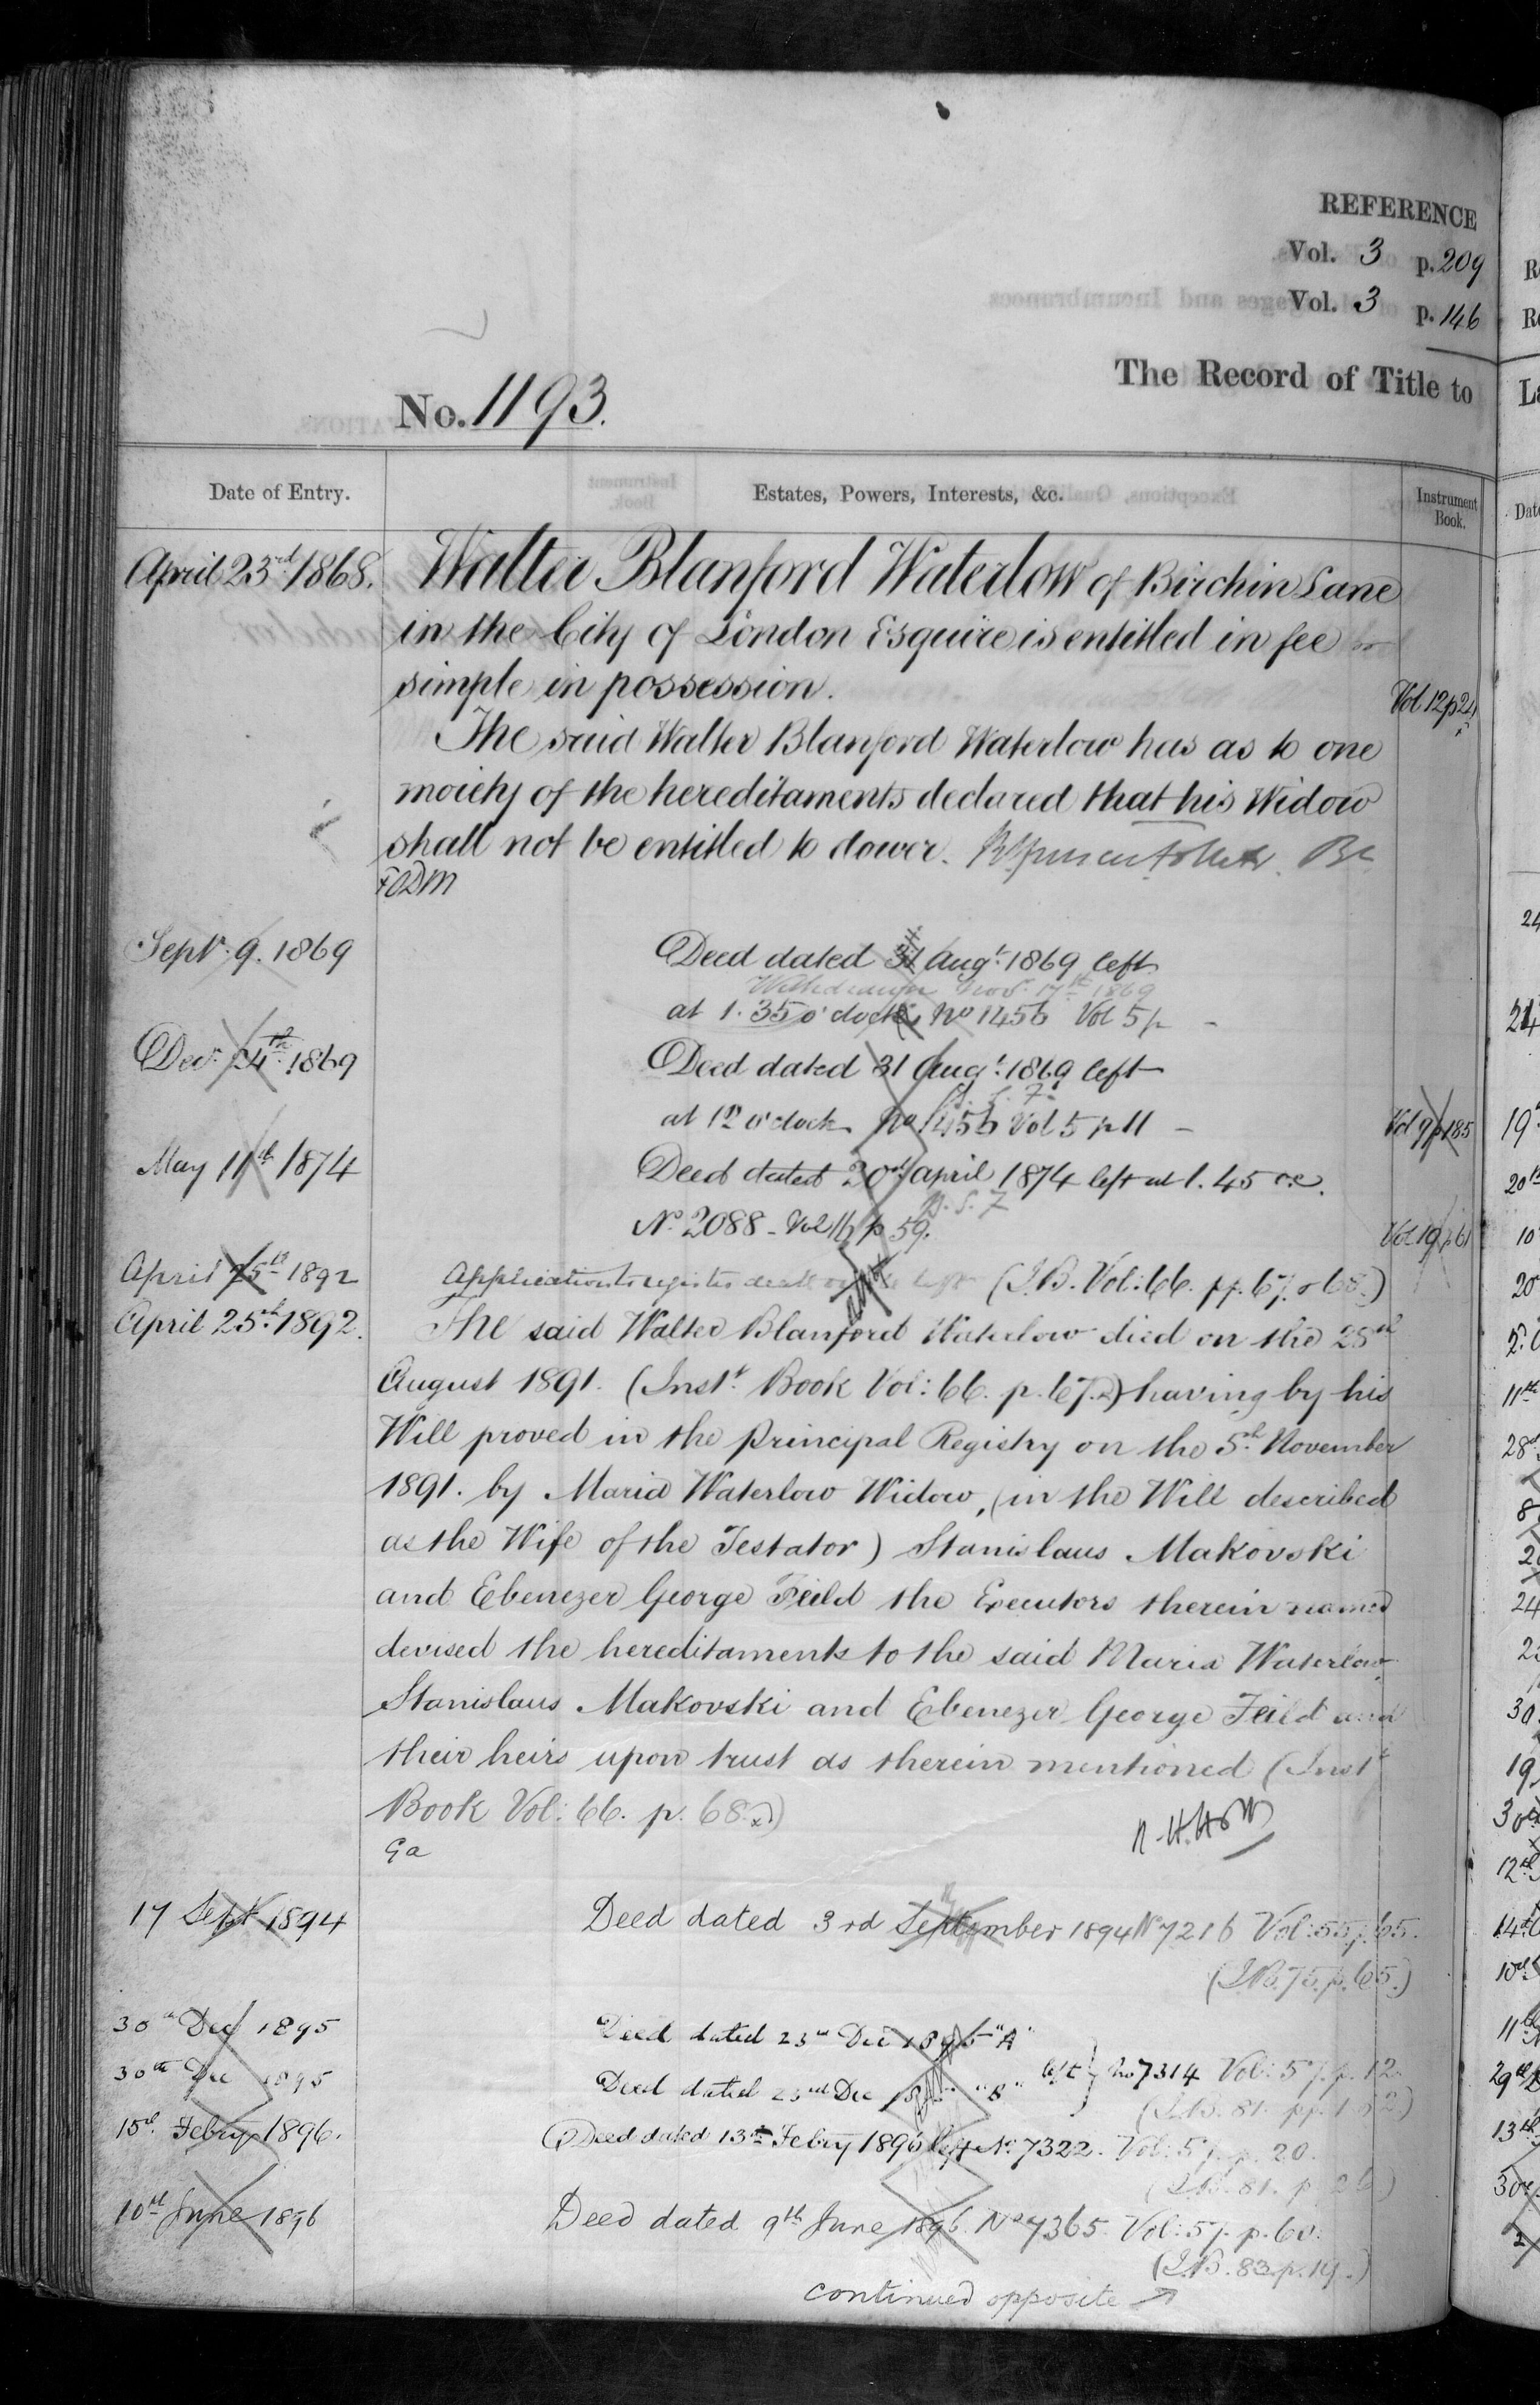 REFERENCE
Vol. 3 p. 209
Vol. 3 p. 146
The Record of Title to
No. 1193.
Date of Entry. Estates, Powers, Interests, &c. Instrument Book.
April 23rd 1868. Walter Blanford Waterlow of Birchin Lane
in the City of London Esquire is entitled in fee
simple in possession.
Vol 12 p 24
The said Walter Blanford Waterlow has as to one
moiety of the hereditaments declared that his Widow
shall not be entitled to dower.
Septr. 9. 1869 Deed dated 31 Augt. 1869 left
Withdrawn Novr. 17th 1869
at 1.35 o'clock No 1456 Vol 5 p -
Decr. 24th 1869 Deed dated 31 Augt. 1869 left
at 12 o'clock No 1456 Vol 5 p 11 - Vol 9 p 185
May 11th 1874 Deed dated 20th April 1874 left at 1.45 o.c.
No. 2088 - Vol 16 p 59. Vol 19 p 61
April 25th 1892 Application to register death (I.B. Vol: 66. pp. 67 & 68.)
April 25th 1892. The said Walter Blanford Waterlow died on the 28th
August 1891. (Inst. Book Vol: 66. p. 67.) having by his
Will proved in the Principal Registry on the 5th November
1891. by Maria Waterlow Widow, (in the Will described
as the Wife of the Testator) Stanislaus Makovski
and Ebenezer George Feild the Executors therein named
devised the hereditaments to the said Maria Waterlow
Stanislaus Makovski and Ebenezer George Feild and
their heirs upon trust as therein mentioned (Inst
Book Vol: 66. p. 68.)
Ga
17 Sept 1894 Deed dated 3rd September 1894 No 7216 Vol: 55 p. 65.
(I.B. 75. p. 65.)
30th Dec 1895 Deed dated 23rd Dec 1895 "A"
30th Dec 1895 Deed dated 23rd Dec "B" left } No 7314 Vol: 57. p. 12.
(I.B. 81. pp. 1 & 2)
15th Febry 1896. Deed dated 13th Febry 1896 left No. 7322. Vol: 57. p. 20.
(I.B. 81. p. 26)
10th June 1896 Deed dated 9th June 1896. No 7365. Vol: 57. p. 60.
(I.B. 83 p. 19.)
continued opposite →